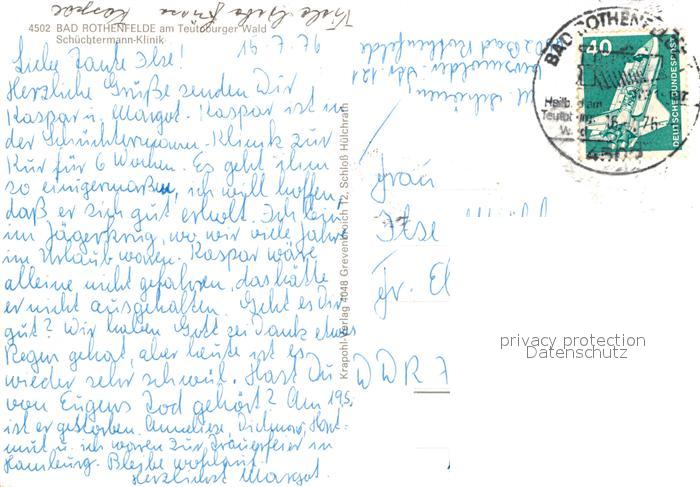 Viele liebe Grüße Kaspar
4502 BAD ROTHENFELDE am Teutoburger Wald
Schüchtermann-Klinik
15.7.76
Liebe Tante Ilse!
Herzliche Grüße senden Dir
Kaspar u. Margot. Kaspar ist in
der Schüchtermann-Klinik zur
Kur für 6 Wochen. Es geht ihm
so einigermaßen, ich will hoffen,
daß er sich gut erholt. Ich bin
im Jägerkrug, wo wir viele Jahre
im Urlaub waren. Kaspar wäre
alleine nicht gefahren, das hätte
er nicht ausgehalten. Geht es Dir
gut? Wir haben Gott sei Dank etwas
Regen gehabt, aber heute ist es
wieder sehr schwül. Hast Du
von Eugens Tod gehört? Am 19.5.
ist er gestorben. Anneliese, Dietmar, Hart-
mut u. ich waren zur Trauerfeier in
Hamburg. Bleibe wohlauf
Herzlichst Margot.
Krapohl-Verlag 4048 Grevenbroich 12, Schloß Hülchrath
Bad Rothenfelde
Str. 121
BAD ROTHENFELDE
Heilb. am
Teutbg.
W d
76
4502
40
DEUTSCHE BUNDESPOST
Frau
Ilse
Fr. E
DDR
privacy protection
Datenschutz